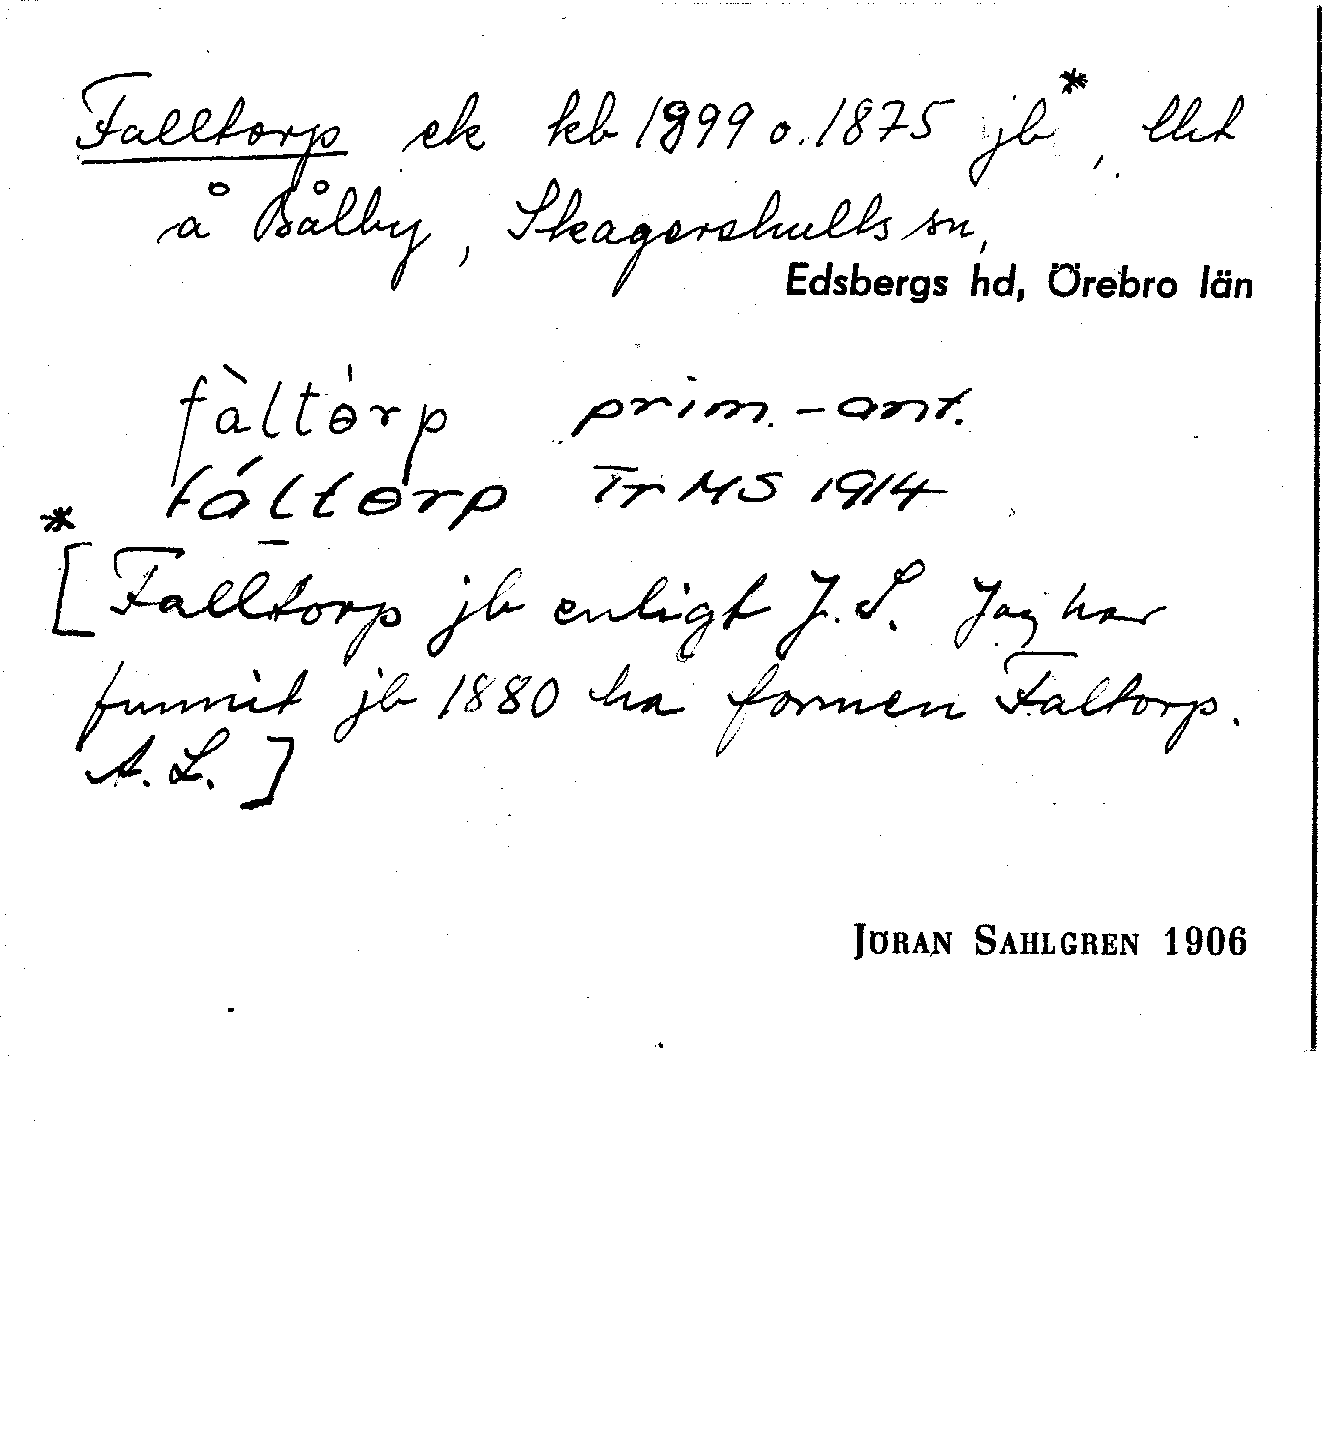 Falltorp ek kb 1899 o. 1875 jb*, lht
å Bålby, Skagershults sn,
Edsbergs hd, Örebro län
fàltɵ̀rp prim.-ant.
fáltɵrp Tr MS 1914
*
[Falltorp jb enligt J. S. Jag har
funnit jb 1880 ha formen Faltorp.
A. L.]
JÖRAN SAHLGREN 1906